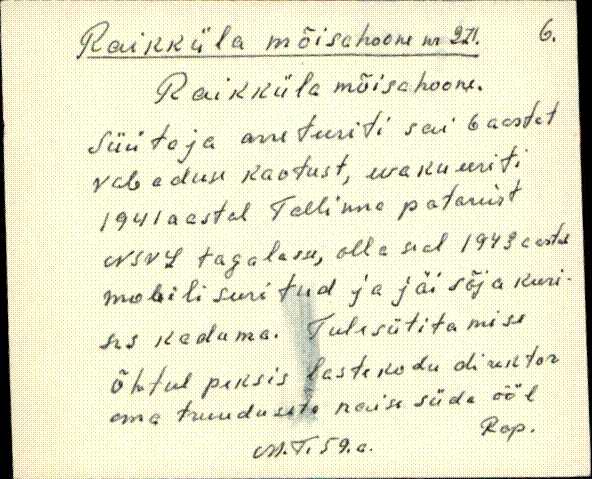 Raikküla mõisahoone nr 221. 6.
Raikküla mõisahoone.
Süütaja arreteeriti sai 6 aastat
vabaduse kaotust, evakueeriti
1941 aastal Tallinna patareist
NSVL tagalasse, olla seal 1943 aastal
mobiliseeritud ja jäi sõja keeri-
ses kaduma. Tulesüütitamise
õhtul peksis lastekodu direktor
oma truudusete naise süda ööl
M.T. 59.a. Rap.